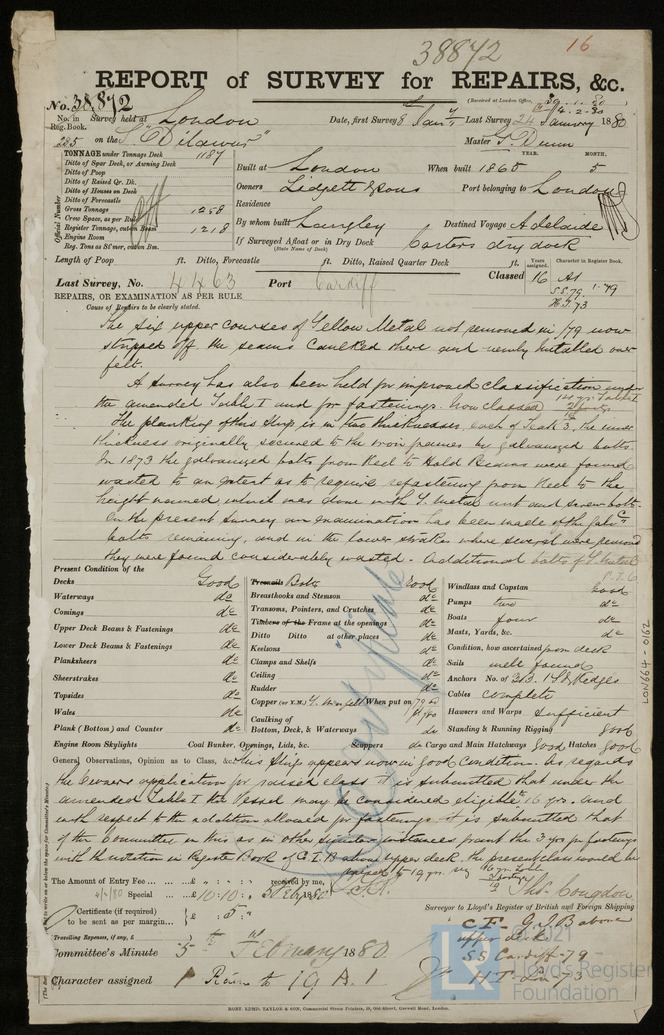 38872
16
REPORT of SURVEY for REPAIRS, &c.
(Received at London Office,
No. 38,872
No. in Survey held at London Date, first Survey 8 Jany Last Survey 24 January 1880
Reg. Book.
on the S. "Dilawur" Master G. Dunn
TONNAGE under Tonnage Deck 1187
Ditto of Spar Deck, or Awning Deck
Ditto of Poop
Ditto of Raised Qr. Dk.
Ditto of Houses on Deck
Ditto of Forecastle
Gross Tonnage 1258
Crew Space, as per Rule
Register Tonnage, cut on Beam 1218
Engine Room
Reg. Tons as St'mer, cut on Bm.
Official Number
YEAR. MONTH.
Built at London When built 1865 5
Owners Lidgett & Sons Port belonging to London
Residence
By whom built Langley Destined Voyage Adelaide
If Surveyed Afloat or in Dry Dock Carters dry dock
(State Name of Dock)
Length of Poop ft. Ditto, Forecastle ft. Ditto, Raised Quarter Deck ft.
Years assigned. Character in Register Book.
Classed 16 A1
S.S. 79. 1.79
H.T. 73
Last Survey, No. 4463 Port Cardiff
REPAIRS, OR EXAMINATION AS PER RULE
Cause of Repairs to be clearly stated.
The six upper courses of Yellow Metal not removed in /79 now
stripped off the seams caulked there and newly metalled over
felt.
A survey has also been held for improved classification under
the amended Table I and for fastenings. Now classed
The planking of this Ship is in two thicknesses, each of Teak 3, the inner
thickness originally secured to the iron frames by galvanized bolts.
In 1873 the galvanized bolts from Keel to Hold Beams were found
wasted to an extent as to require refastening from Keel to the
height named, which was done with Y. Metal nut and screw bolts.
On the present survey an examination has been made of the galvd
bolts remaining, and in the lower strakes where several were removed
they were found considerably wasted. Additional bolts of Y. Metal
P.T.O.
Present Condition of the
Decks Good
Waterways do
Comings do
Upper Deck Beams & Fastenings do
Lower Deck Beams & Fastenings do
Planksheers do
Sheerstrakes do
Topsides do
Wales do
Plank (Bottom) and Counter do
Engine Room Skylights
Treenails Bolts Good
Breasthooks and Stemson do
Transoms, Pointers, and Crutches do
Timbers of the Frame at the openings do
Ditto Ditto at other places do
Keelsons do
Clamps and Shelfs do
Ceiling do
Rudder do
Copper (or Y.M.) When put on
Caulking of
Bottom, Deck, & Waterways do
Coal Bunker, Openings, Lids, &c. Scuppers do
Windlass and Capstan Good
Pumps two do
Boats four do
Masts, Yards, &c. do
Condition, how ascertained from deck
Sails well found
Anchors No. of
Cables complete
Hawsers and Warps sufficient
Standing & Running Rigging good
Cargo and Main Hatchways Good Hatches good
Certificate
General Observations, Opinion as to Class, &c. This Ship appears now in good Condition. As regards
the Owners application for raised class it is submitted that under the
amended Table I the Vessel may be considered eligible to 16 yrs. and
with respect to the addition allowed for fastenings it is submitted that
if the Committee in this as in other similar instances grant the 3 yrs for fastenings
with the notation in Register Book of G.I.B above upper deck, the present class would be
raised to 19 yrs.
The Amount of Entry Fee ... £ : : received by me,
Special ... £ 10 : 10 :
Certificate (if required) £ : 5 :
to be sent as per margin...
Travelling Expenses, if any, £
Thos. Congdon
Surveyor to Lloyd's Register of British and Foreign Shipping
Committee's Minute 5th February 1880.
Character assigned Raise to 19 A.1
C.F. G.I.B above
upper deck
S.S. Cardiff - 79
H.T. Lon 73
LON664-0162
© 2021
Lloyd's Register
Foundation
ROBT. KEMP, TAYLOR & SON, Commercial Steam Printers, 29, Old Street, Goswell Road, London.